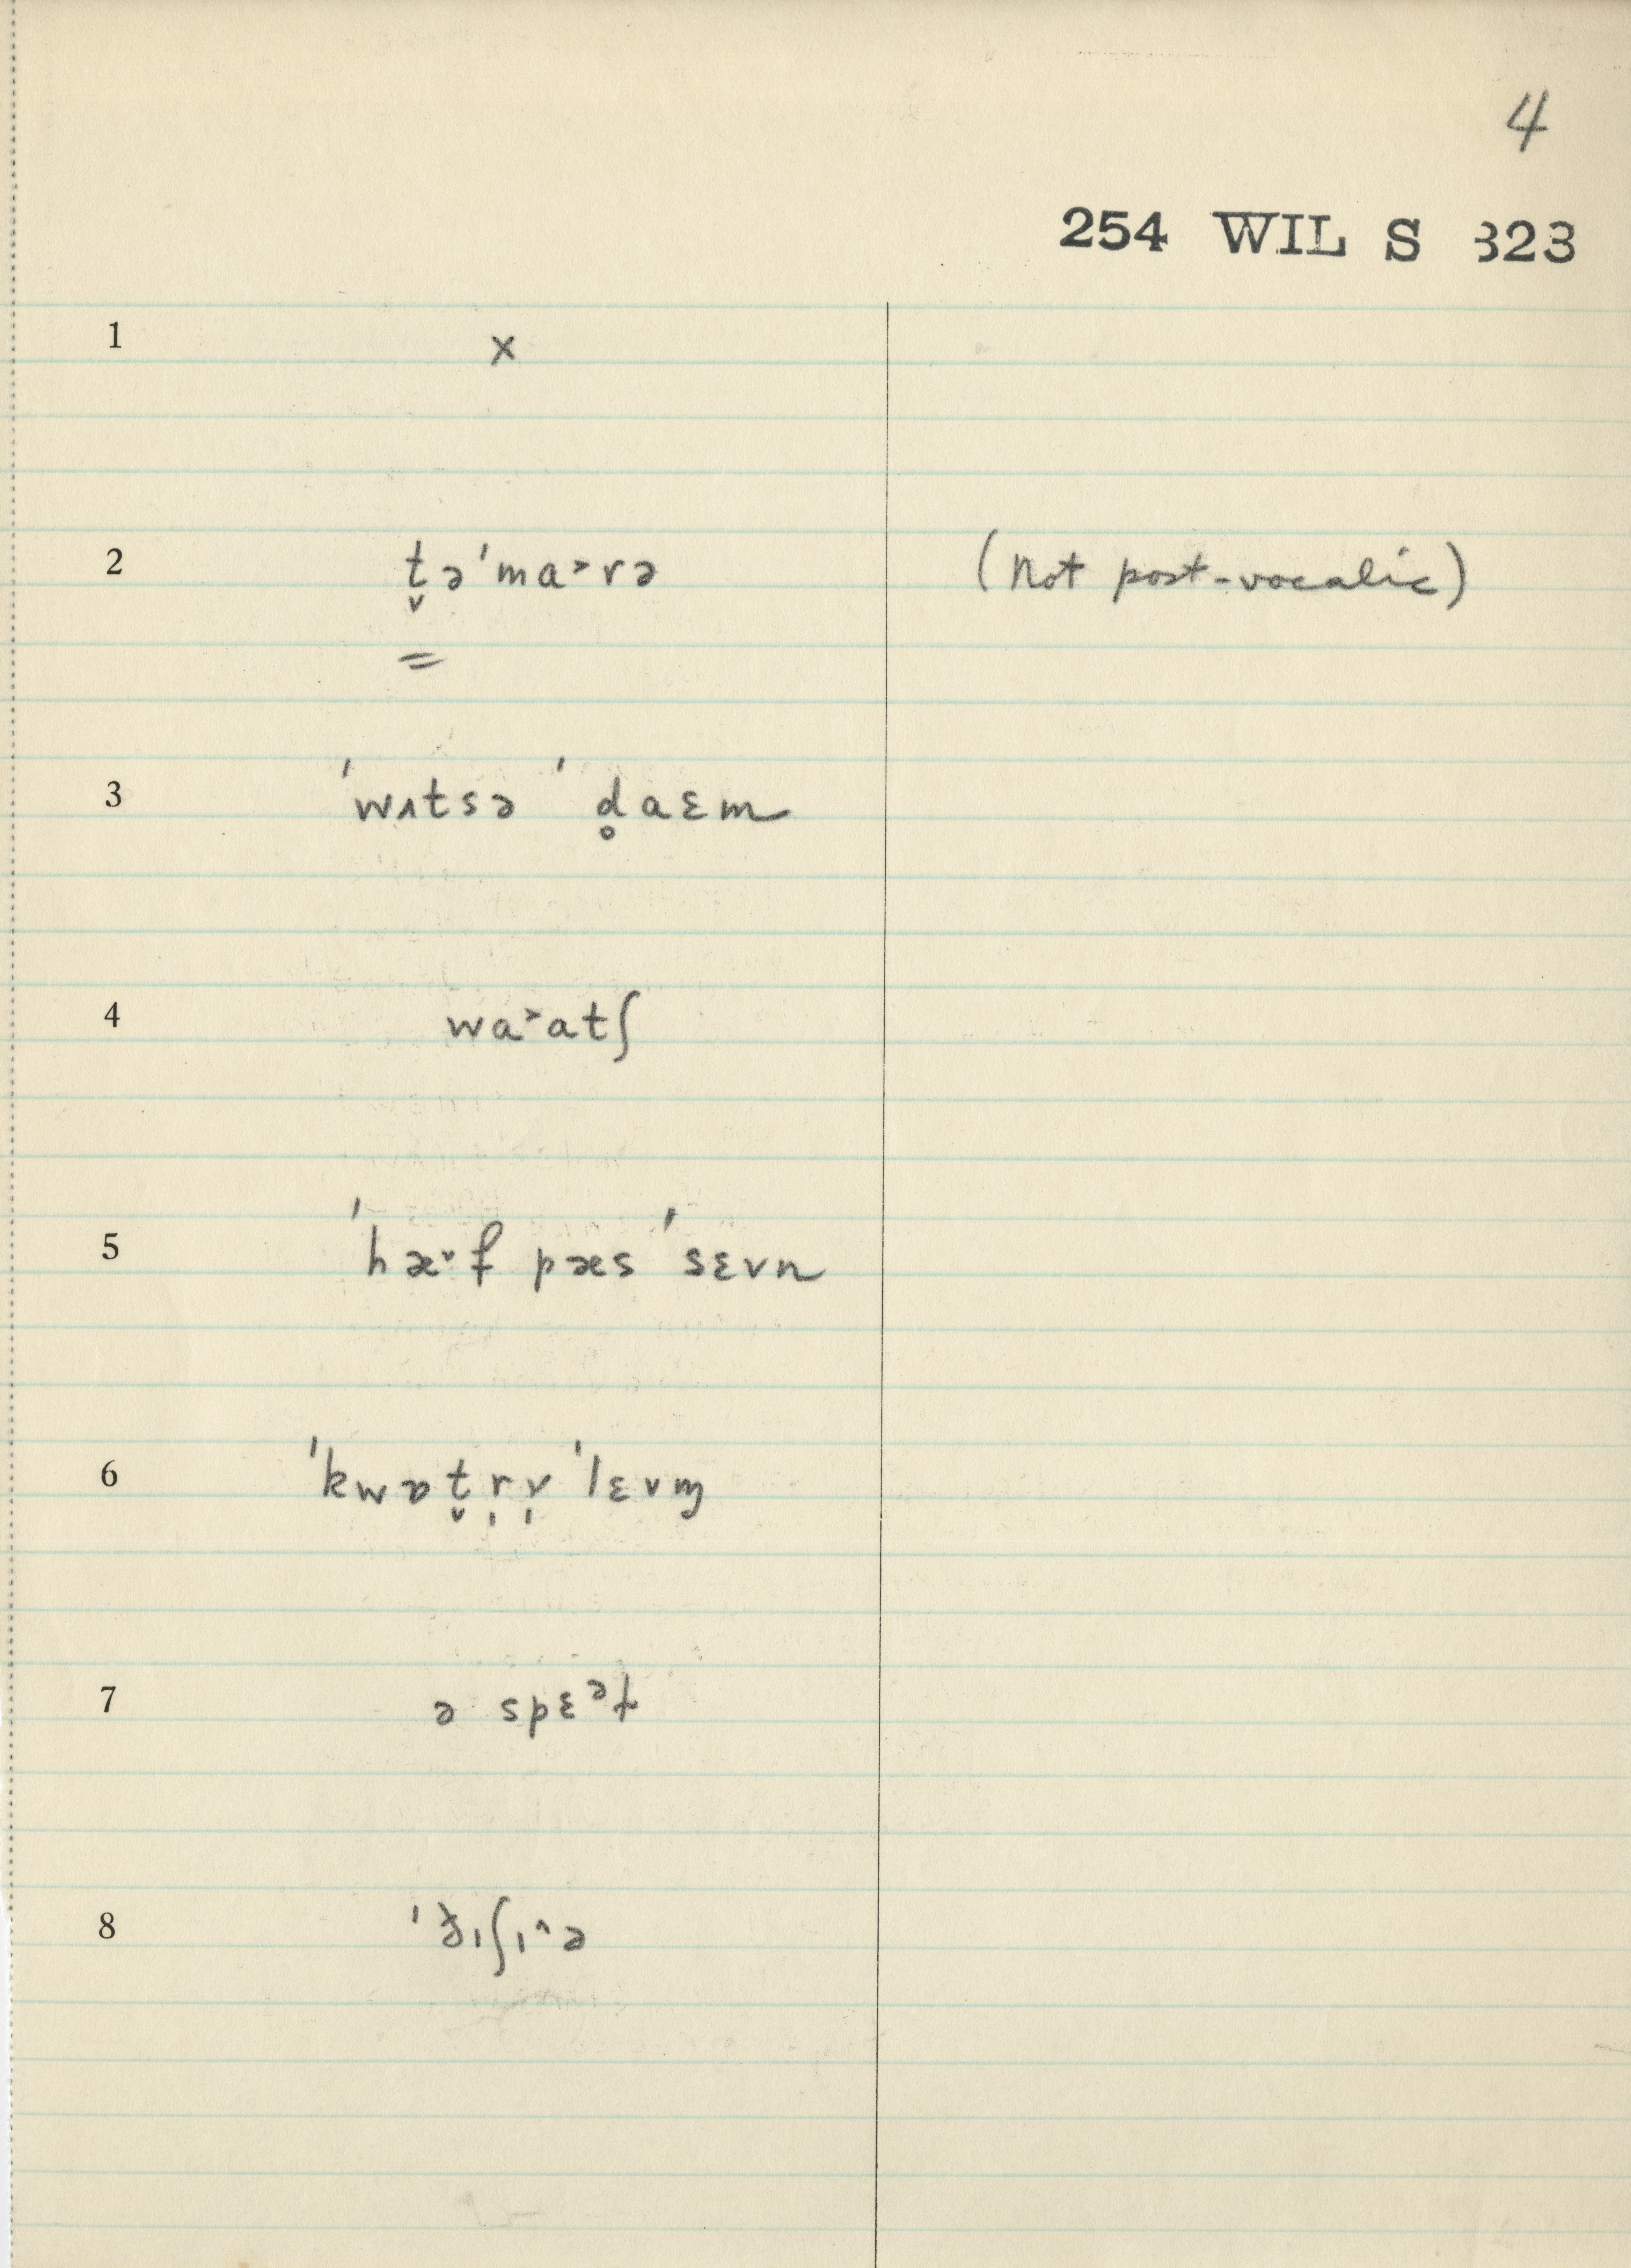 4
254 WIL S 323
1 x
2 t̬ə'ma˃rə (not post-vocalic)
=
3 'wʌtsə ' d̥aɛm
4 wa˃atʃ
5 'hæ˅f pæs 'sɛvn
6 'kwɒt̬r̩ɤ̩ 'lɛvm̩
7 ə spɛᵊɫ
8 'ɪʃɪ^ə